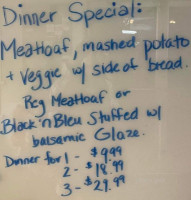 Dinner Special:
Meatloaf, mashed potato
+ Veggie w/ side of bread.
Reg Meatloaf or
Black 'n Bleu Stuffed w/
balsamic Glaze.
Dinner for 1 - $9.99
2 - $18.99
3 - $27.99